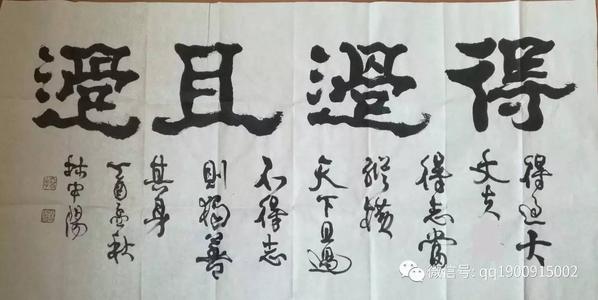 得過且過
得過大
丈夫
得志當
縱橫
天下且過
不得志
則獨善
其身
丁酉孟秋
林中陽
微信号: qq1900915002